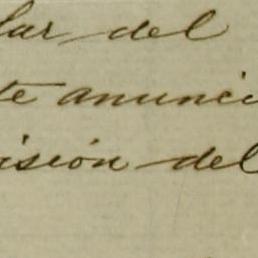 lar del
te anunci
isión del